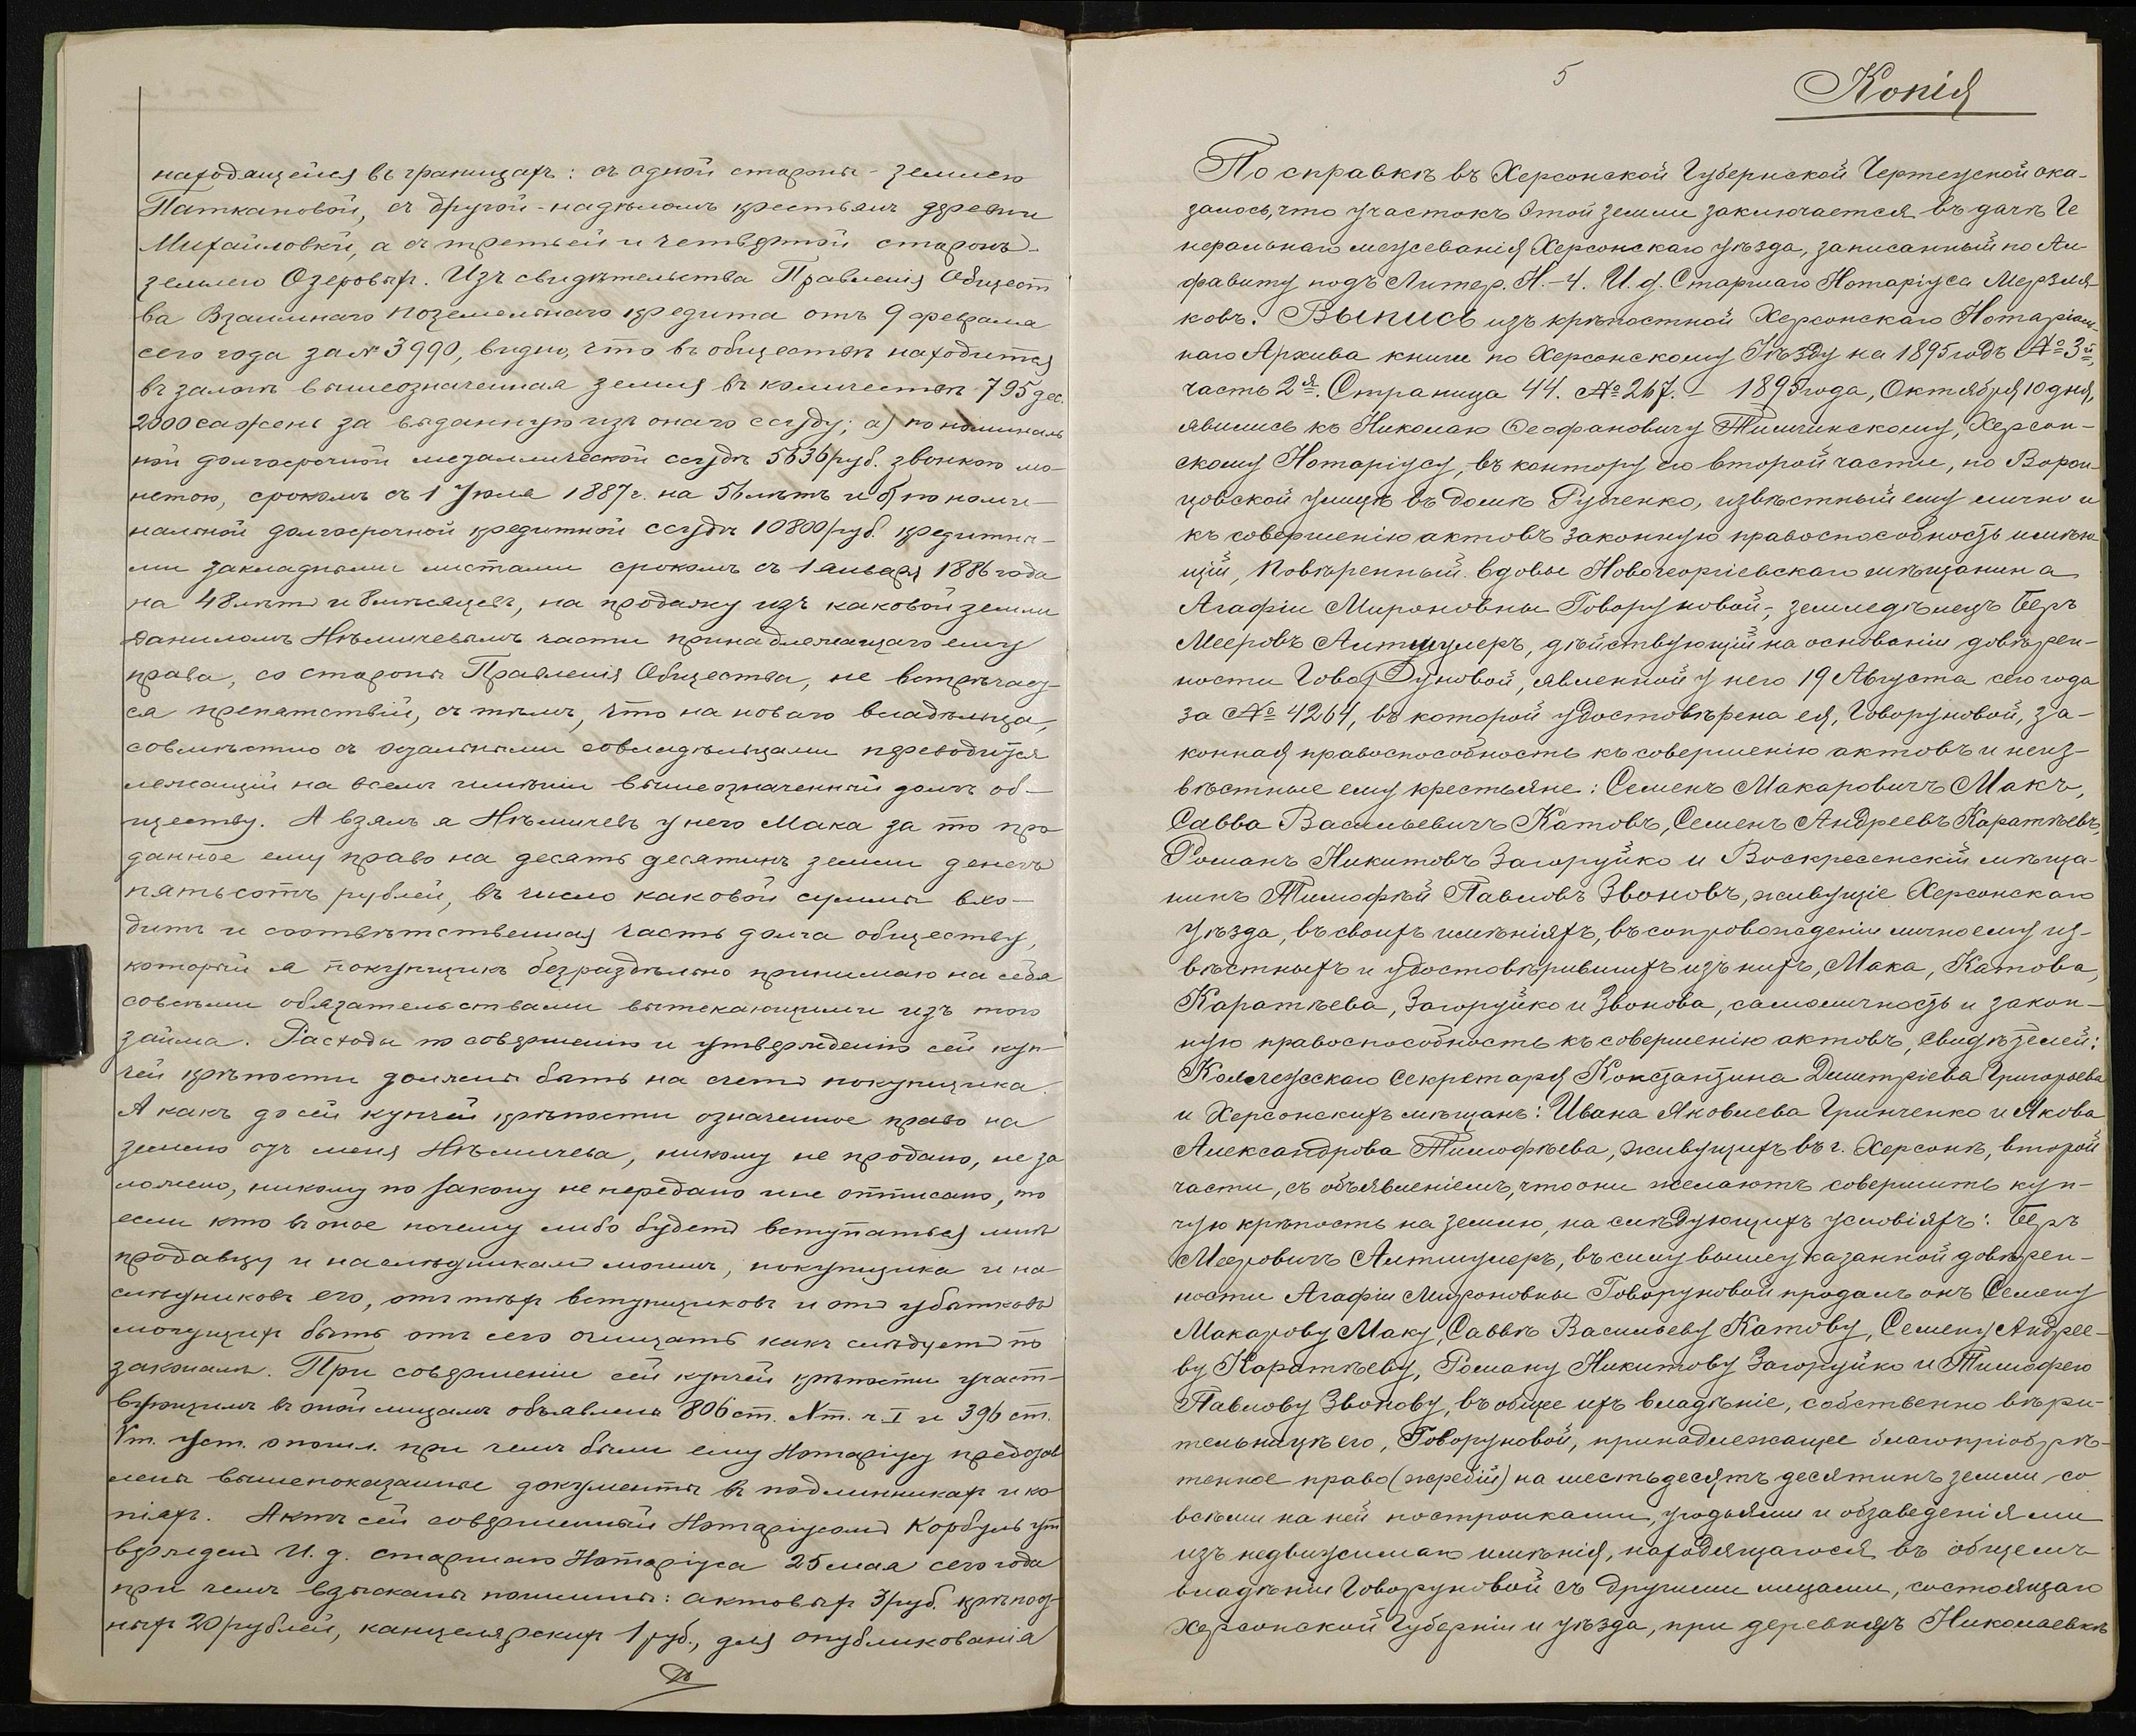 находящейся въ границахъ: съ одной стороны - землею
Паткановой, съ другой - надѣломъ крестьянъ деревни
Михайловки, а съ третьей и четвертой сторонъ
землею Озеровыхъ. Изъ свидѣтельства Правленія Общест
ва Взаимнаго Поземельнаго кредита отъ 9 февраля
сего года за № 3990, видно, что въ обществѣ находится
въ залогѣ вышеозначенная земля въ количествѣ 795 дес.
2000 сажень за выданную изъ онаго ссуду; а) по номиналь
ной долгосрочной металлической ссудѣ 5636 руб. звонкою мо-
нетою, срокомъ съ 1 Іюля 1887 г. на 56 лѣтъ и б) по номи-
нальной долгосрочной кредитной ссудѣ 10800 руб. кредитны-
ми закладными листами срокомъ съ 1 января 1886 года
на 48 лѣтъ и 8 мѣсяцевъ, на продажу изъ каковой земли
Даниломъ Нѣмичевымъ части принадлежащаго ему
права, со стороны Правленія Общества, не встрѣчает-
ся препятствій, съ тѣмъ, что на новаго владѣльца,
совмѣстно съ остальными совладѣльцами переводится
лежащій на всемъ имѣніи вышеозначенный долгъ об-
ществу. А взялъ я Нѣмичевъ у него Мака за то про
данное ему право на десять десятинъ земли денегъ
пятьсотъ рублей, въ число каковой суммы вхо-
дитъ и соотвѣтственная часть долга обществу,
который я покупщикъ безраздѣльно принимаю на себя
со всѣми обязательствами вытекающими изъ того
займа. Расходы по совершенію и утвержденію сей куп-
чей крѣпости должны быть на счетъ покупщика.
А какъ до сей купчей крѣпости означенное право на
землю отъ меня Нѣмичева, никому не продано, не за
ложено, никому по закону не передано и не отписано, то
если кто въ оное почему либо будетъ вступаться мнѣ
продавцу и наслѣдникамъ моимъ, покупщика и на-
слѣдниковъ его, отъ тѣхъ вступщиковъ и отъ убытковъ
могущихъ быть отъ сего очищать какъ слѣдуетъ по
законамъ. При совершеніи сей купчей крѣпости участ-
вующимъ въ оной лицамъ объявлены 806 ст. Хт. ч. I и 396 ст.
Vт. уст. о пошл. при чемъ были ему Нотаріусу предъяв
лены вышепоказанные документы въ подлинникахъ и ко
піяхъ. Актъ сей совершенный Нотаріусомъ Корбуль ут
вержденъ И. д. старшаго Нотаріуса 25 мая сего года
при чемъ взысканы пошлины: актовыхъ 3 руб. крѣпост-
ныхъ 20 рублей, канцелярскихъ 1 руб., для опубликованія
5
Копія
По справкѣ въ Херсонской Губернской Чертежной ока-
залось, что участокъ этой земли заключается въ дачѣ Ге
неральнаго межеванія Херсонскаго уѣзда, записанный по Ал
фавиту подъ Литер. Н.-4. И. д. Старшаго Нотаріуса Мерзля-
ковъ. Выпись изъ крѣпостной Херсонскаго Нотаріаль-
наго Архива книги по Херсонскому Уѣзду на 1895 годъ № 3й,
часть 2я. Страница 44. № 267. – 1895 года, Октября 10 дня,
явились къ Николаю Ѳеофановичу Тимчинскому, Херсон-
скому Нотаріусу, въ контору его второй части, по Ворон-
цовской улицѣ въ домѣ Рутченко, извѣстный ему лично и
къ совершенію актовъ законную правоспособность имѣю
щій, Повѣренный вдовы Новогеоргіевскаго мѣщанина
Агафіи Мироновны Говоруновой, земледѣлецъ Беръ
Мееровъ Альтшулеръ, дѣйствующій на основаніи довѣрен-
ности Говоруновой, явленной у него 19 Августа сего года
за № 4264, въ которой удостовѣрена ея, Говоруновой, за-
конная правоспособность къ совершенію актовъ и неиз-
вѣстные ему крестьяне: Семенъ Макаровичъ Макъ,
Савва Васильевичъ Катовъ, Семенъ Андреевъ Каратѣевъ,
Романъ Никитовъ Загоруйко и Воскресенскій мѣща-
нинъ Тимофѣй Павловъ Звоновъ, живущіе Херсонскаго
уѣзда, въ своихъ имѣніяхъ, въ сопровожденіи лично ему из-
вѣстныхъ и удостовѣрившихъ изъ нихъ, Мака, Катова,
Каратѣева, Загоруйко и Звонова, самоличность и закон-
ную правоспособность къ совершенію актовъ, свидѣтелей:
Коллежскаго Секретаря Константина Димитріева Григорьева
и Херсонскихъ мѣщанъ: Ивана Яковлева Гринченко и Якова
Александрова Тимофѣева, живущихъ въ г. Херсонѣ, второй
части, съ объявленіемъ, что они желаютъ совершить куп-
чую крѣпость на землю, на слѣдующихъ условіяхъ: Беръ
Мееровичъ Альтшулеръ, въ силу вышеуказанной довѣрен-
ности Агафіи Мироновны Говоруновой продалъ онъ Семену
Макарову Маку, Саввѣ Васильеву Катову, Семену Андрее-
ву Каратѣеву, Роману Никитову Загоруйко и Тимофею
Павлову Звонову, въ общее ихъ владѣніе, собственно вѣри-
тельницѣ его, Говоруновой, принадлежащее благопріобрѣ-
тенное право (жребій) на шестьдесятъ десятинъ земли со
всѣми на ней постройками, угодьями и обзаведеніями
изъ недвижимаго имѣнія, находящагося въ общемъ
владѣніи Говоруновой съ другими лицами, состоящаго
Херсонской Губерніи и уѣзда, при деревняхъ Николаевкѣ